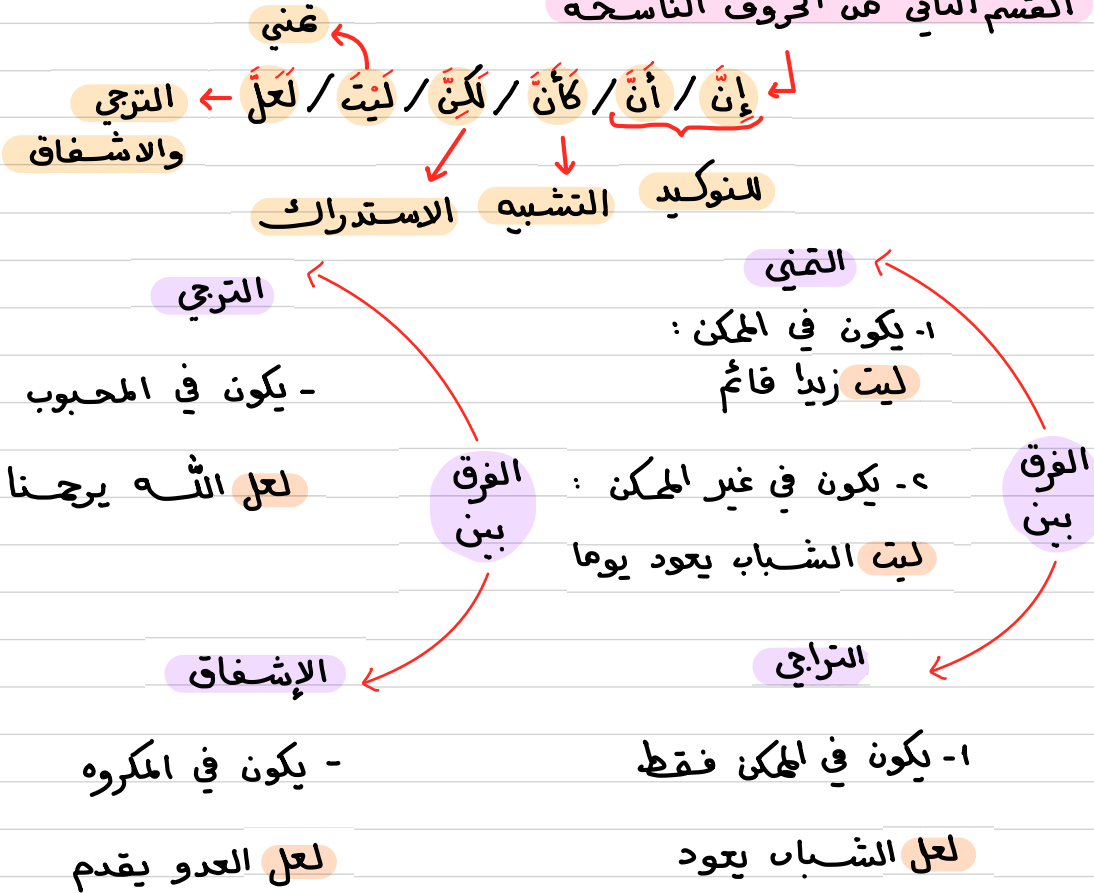 القسم الثاني من الحروف الناسخة
تمني
إِنَّ / أَنَّ / كَأَنَّ / لَكِنَّ / لَيْتَ / لَعَلَّ
الترجي
والاشفاق
للتوكيد
التشبيه
الاستدراك
الفرق
بين
التمني
١- يكون في الممكن :
ليت زيدا قائم
٢- يكون في غير الممكن :
ليت الشباب يعود يوما
التراجي
١- يكون في الممكن فقط
لعل الشباب يعود
الفرق
بين
الترجي
- يكون في المحبوب
لعل الله يرحمنا
الإشفاق
- يكون في المكروه
لعل العدو يقدم